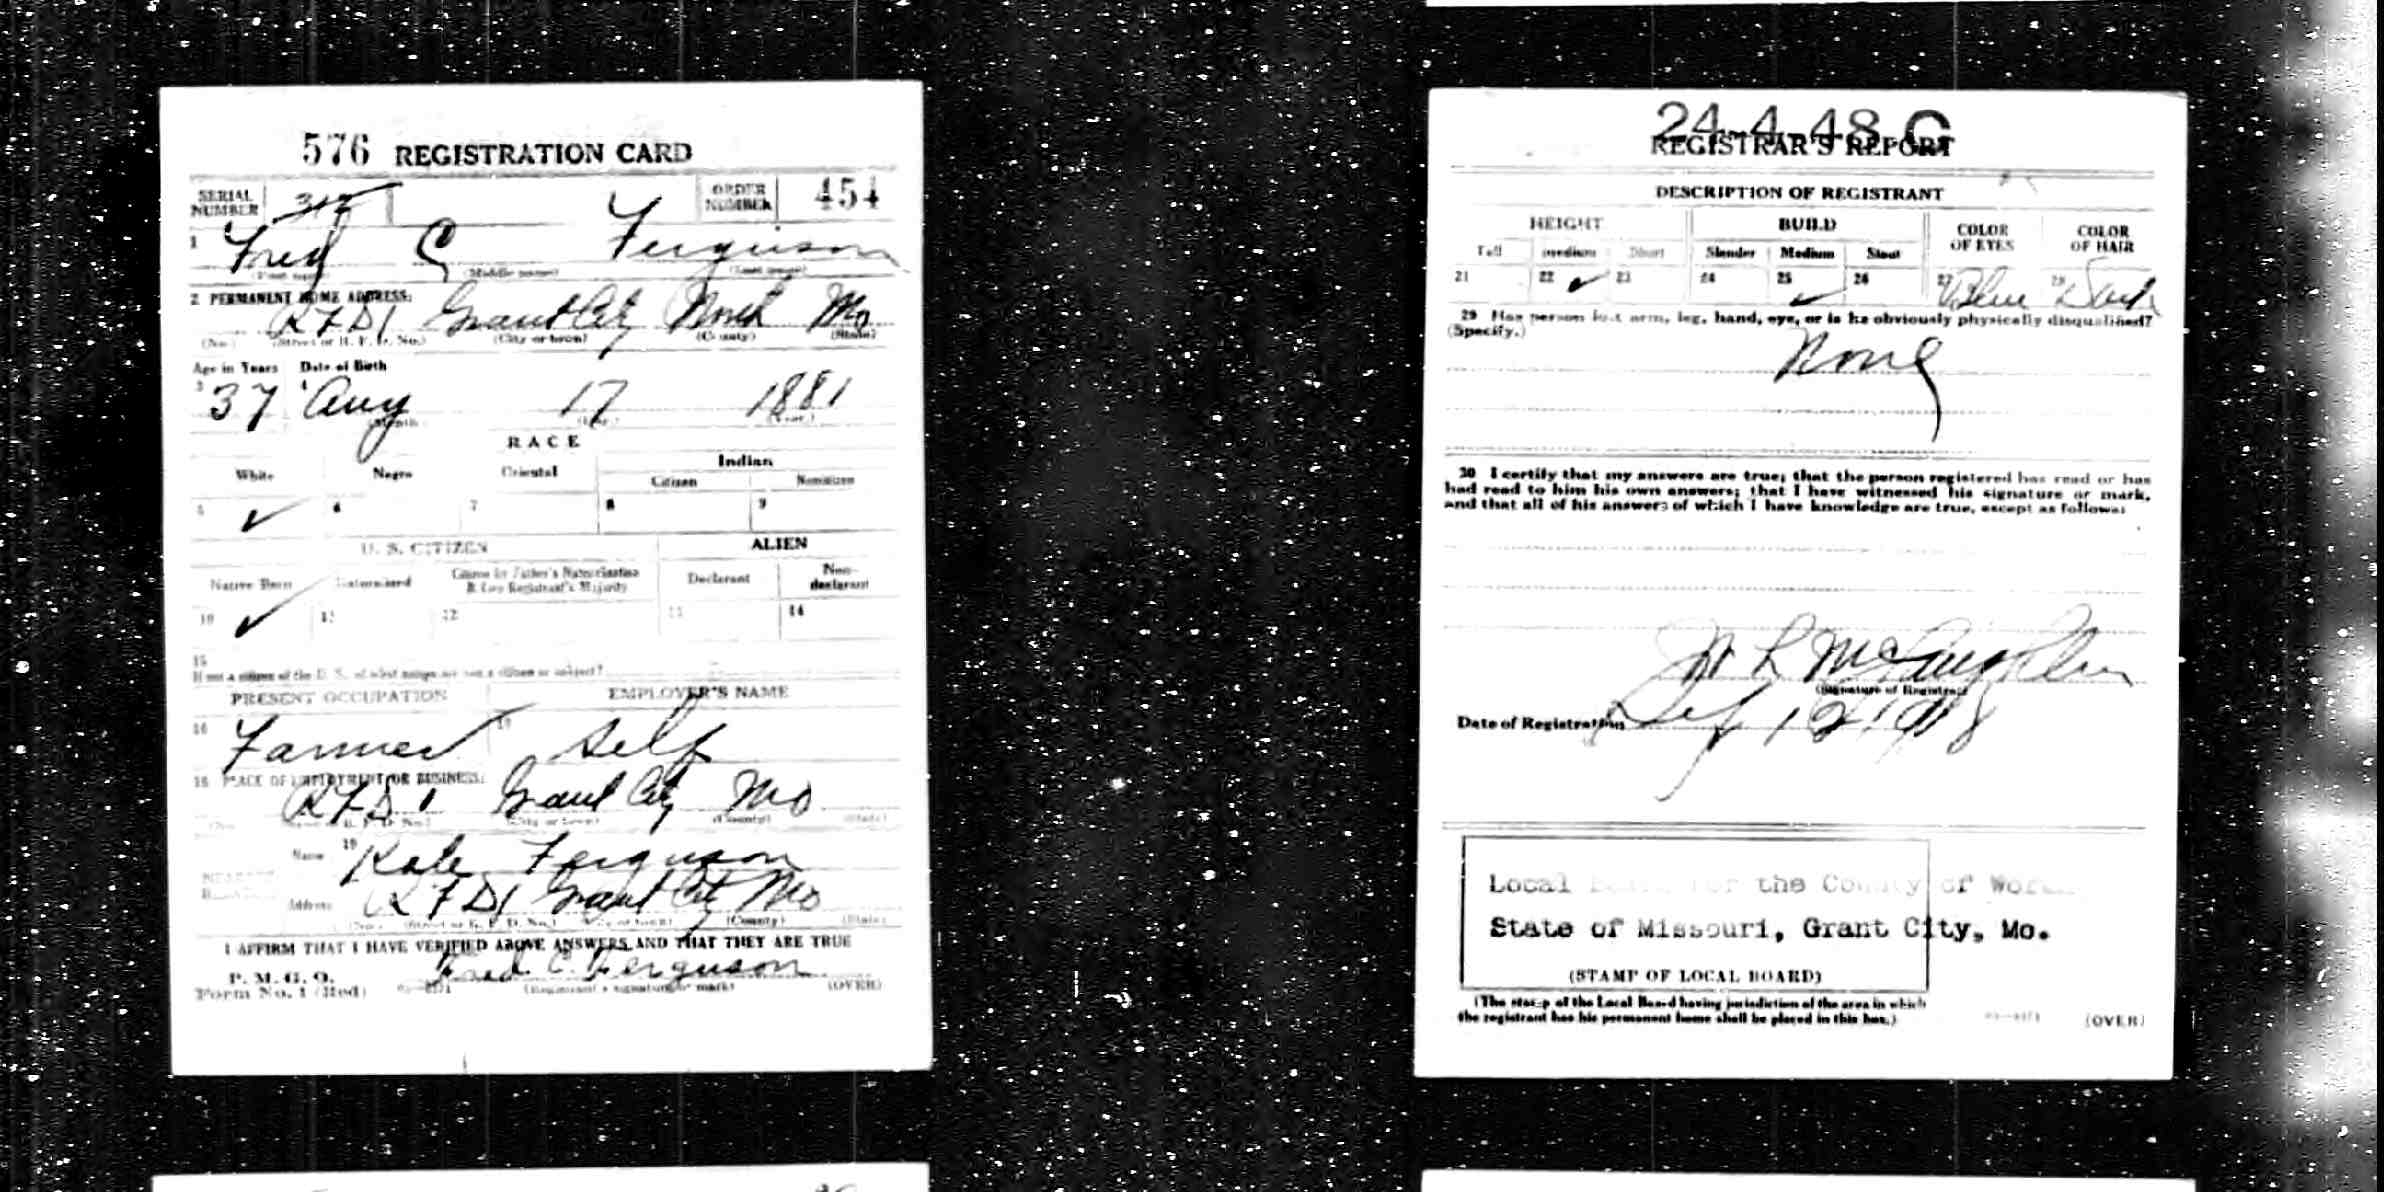 576 REGISTRATION CARD
SERIAL NUMBER ORDER NUMBER 454
1 Fred C Ferguson
(First name) (Middle name) (Last name)
2 PERMANENT HOME ADDRESS:
RFD 1 Grant City Worth Mo
(No.) (Street or R. F. D. No.) (City or town) (County) (State)
Age in Years Date of Birth
3 37 4 Aug 17 1881
(Month) (Day.) (Year.)
RACE
White Negro Oriental Indian
Citizen Noncitizen
5 ✓ 6 7 8 9
U. S. CITIZEN ALIEN
Native Born Naturalized Citizen by Father's Naturalization & Before Registrant's Majority Declarant Non-declarant
10 ✓ 11 12 13 14
15
If not a citizen of the U. S., of what nation are you a citizen or subject?
PRESENT OCCUPATION EMPLOYER'S NAME
16 Farmer 17 self
18 PLACE OF EMPLOYMENT OR BUSINESS:
RFD 1 Grant City Mo
(No.) (Street or R. F. D. No.) (City or town) (County) (State)
Name 19 Kate Ferguson
NEAREST
Address RFD 1 Grant City Mo
(No.) (Street or R. F. D. No.) (City or town) (County) (State)
I AFFIRM THAT I HAVE VERIFIED ABOVE ANSWERS AND THAT THEY ARE TRUE
P. M. G. O.
Form No. 1 (Red) Fred C. Ferguson
(Registrant's signature or mark) (OVER)
24-4-48 C
REGISTRAR'S REPORT
DESCRIPTION OF REGISTRANT
HEIGHT BUILD COLOR OF EYES COLOR OF HAIR
Tall Medium Short Slender Medium Stout
21 22 ✓ 23 24 25 ✓ 26 27 Blue 28 Dark
29 Has person lost arm, leg, hand, eye, or is he obviously physically disqualified?
(Specify.)
None
30 I certify that my answers are true; that the person registered has read or has
had read to him his own answers; that I have witnessed his signature or mark,
and that all of his answers of which I have knowledge are true, except as follows:
L McLaughlin
(Signature of Registrar)
Date of Registration Sep 12 1918
Local Board for the County of Wor
State of Missouri, Grant City, Mo.
(STAMP OF LOCAL BOARD)
(The stamp of the Local Board having jurisdiction of the area in which
the registrant has his permanent home shall be placed in this box.)
(OVER)